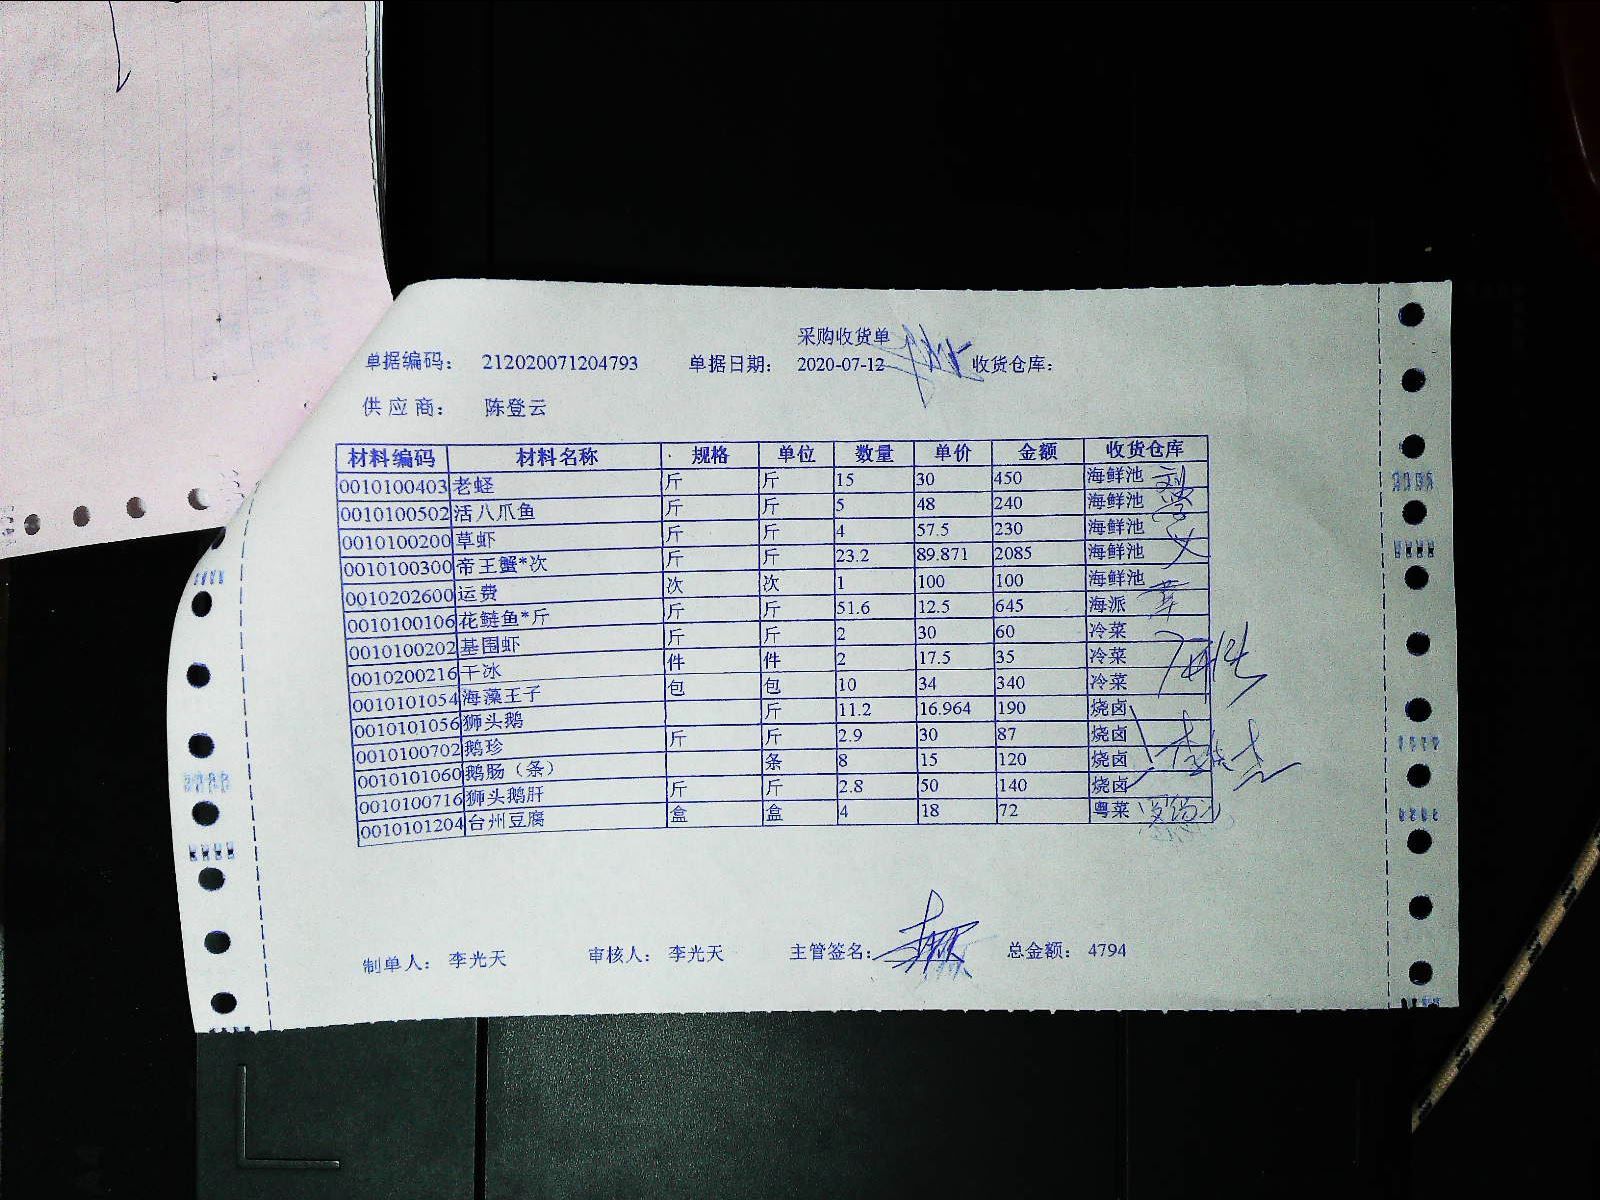 采购收货单
单据编码： 212020071204793 单据日期： 2020-07-12 收货仓库：
供应商： 陈登云
材料编码 材料名称 规格 单位 数量 单价 金额 收货仓库
0010100403 老蛏 斤 斤 15 30 450 海鲜池
0010100502 活八爪鱼 斤 斤 5 48 240 海鲜池
0010100200 草虾 斤 斤 4 57.5 230 海鲜池
0010100300 帝王蟹*次 斤 斤 23.2 89.871 2085 海鲜池
0010202600 运费 次 次 1 100 100 海鲜池
0010100106 花鲢鱼*斤 斤 斤 51.6 12.5 645 海派
0010100202 基围虾 斤 斤 2 30 60 冷菜
0010200216 干冰 件 件 2 17.5 35 冷菜
0010101054 海藻王子 包 包 10 34 340 冷菜
0010101056 狮头鹅 斤 11.2 16.964 190 烧卤
0010100702 鹅珍 斤 斤 2.9 30 87 烧卤
0010101060 鹅肠（条） 条 8 15 120 烧卤
0010100716 狮头鹅肝 斤 斤 2.8 50 140 烧卤
0010101204 台州豆腐 盒 盒 4 18 72 粤菜
制单人： 李光天 审核人： 李光天 主管签名： 总金额： 4794